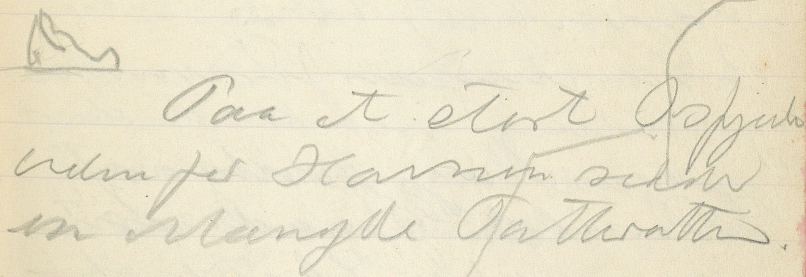 Paa et stort Isfjeld
udenfor Havnen sidder
en Mængde Tatteratter.